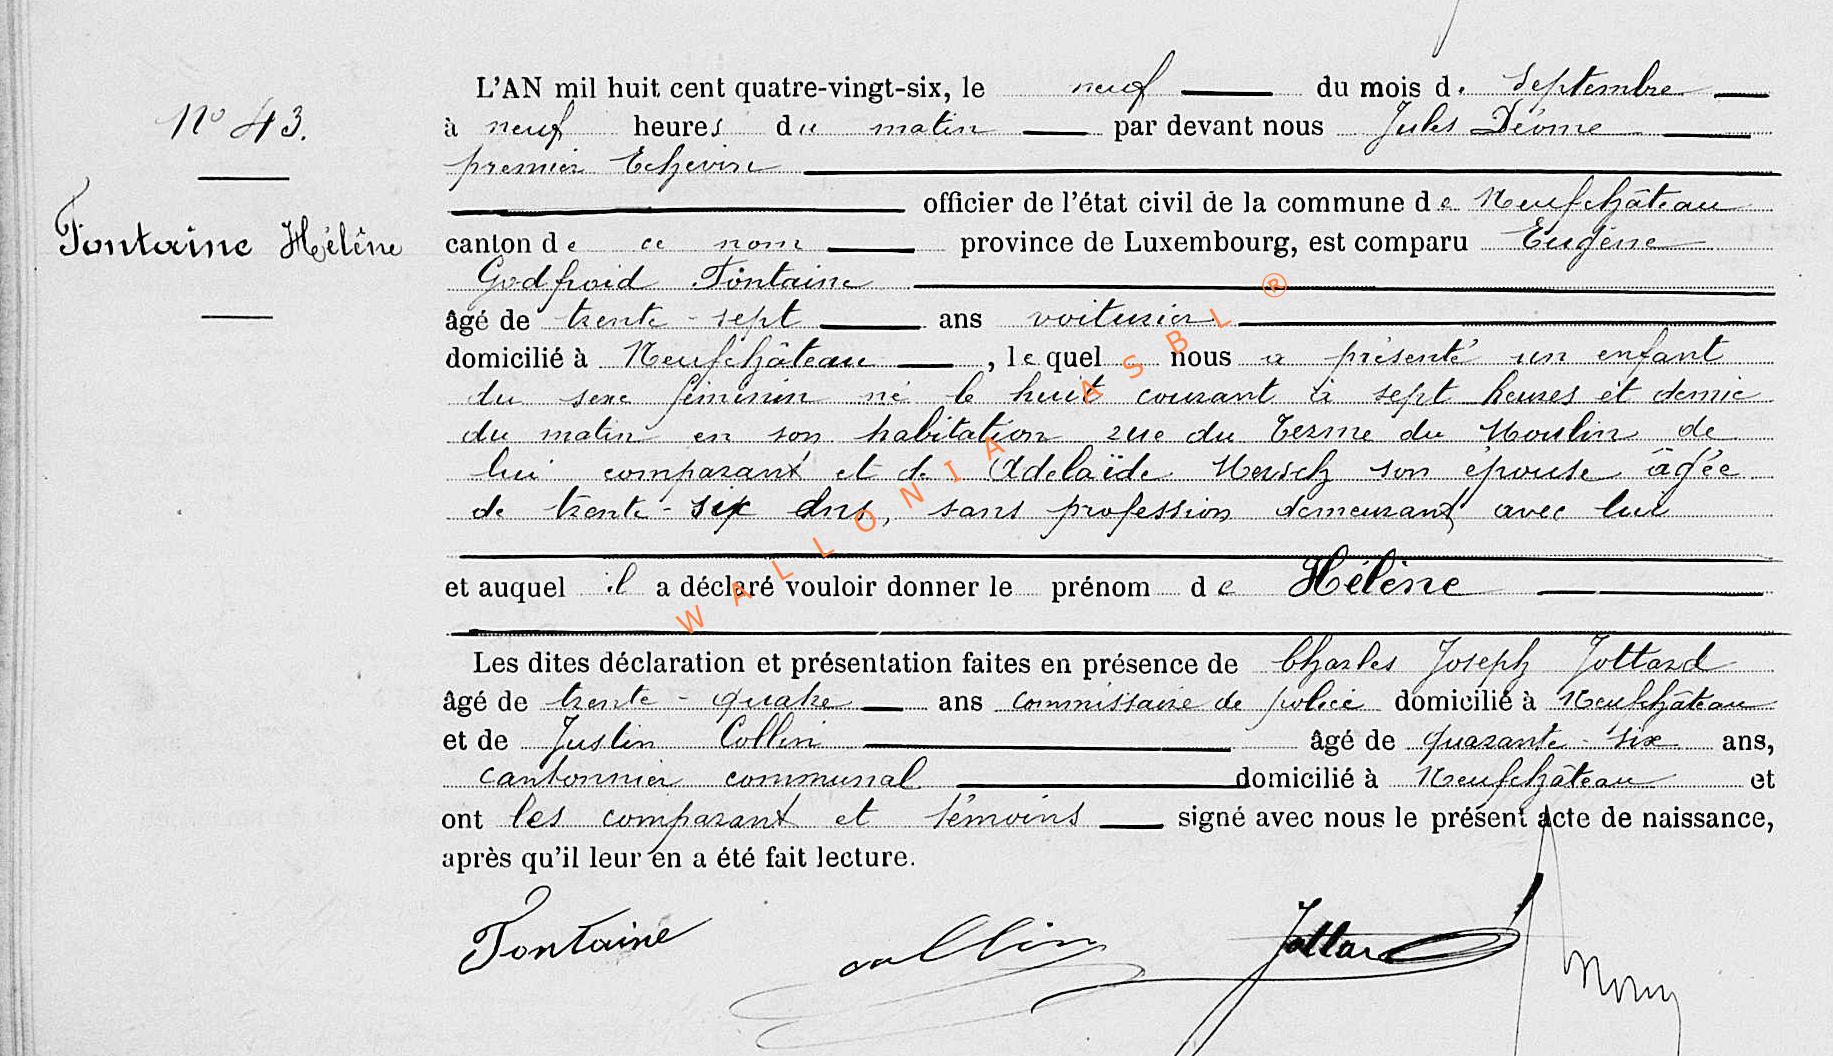 N° 43.
Fontaine Hélène
L'AN mil huit cent quatre-vingt-six, le neuf du mois de septembre
à neuf heures du matin par devant nous Jules Déome
premier Echevin
officier de l'état civil de la commune de Neufchâteau
canton de ce nom province de Luxembourg, est comparu Eugène
Godfroid Fontaine
âgé de trente-sept ans voiturier
domicilié à Neufchâteau, lequel nous a présenté un enfant
du sexe féminin né le huit courant à sept heures et demie
du matin en son habitation rue du Terme du Moulin de
lui comparant et de Adelaïde Hersch son épouse âgée
de trente-six ans, sans profession demeurant avec lui
et auquel il a déclaré vouloir donner le prénom de Hélène
Les dites déclaration et présentation faites en présence de Charles Joseph Jottard
âgé de trente-quatre ans commissaire de police domicilié à Neufchâteau
et de Justin Collin âgé de quarante-six ans,
cantonnier communal domicilié à Neufchâteau et
ont les comparant et témoins signé avec nous le présent acte de naissance,
après qu'il leur en a été fait lecture.
Fontaine Collin Jottard
WALLONIA ASBL ®